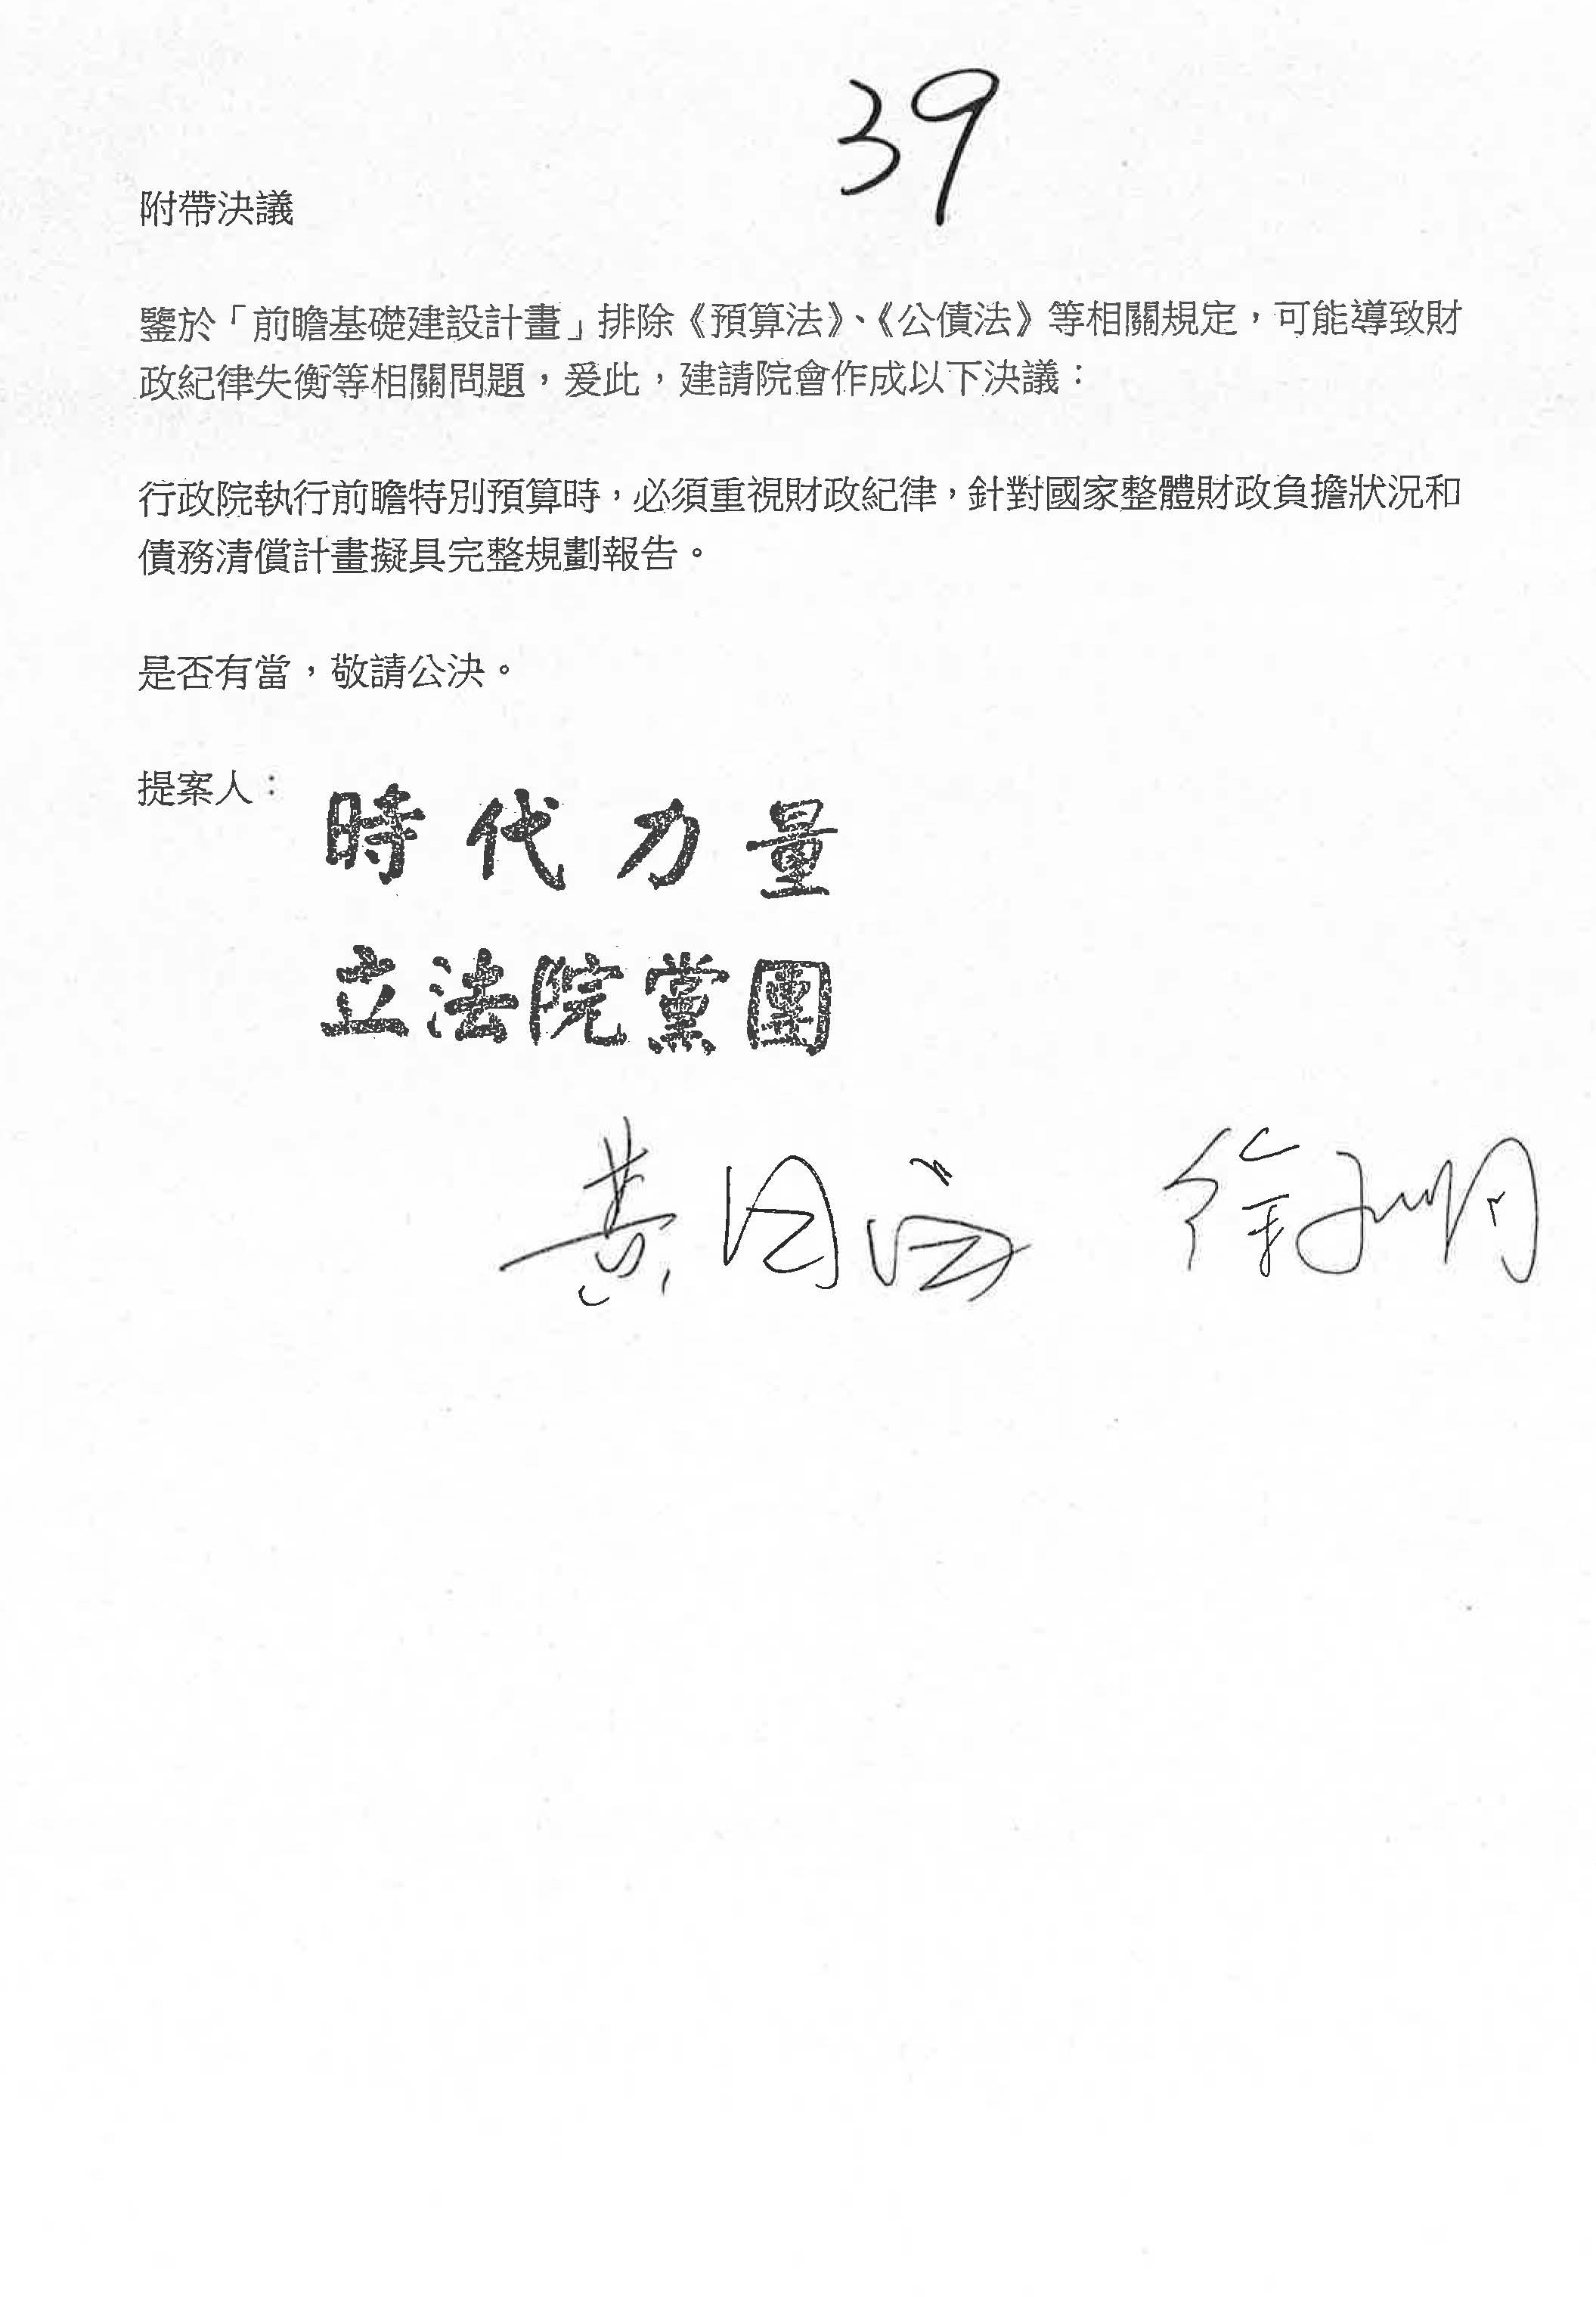 39
附帶決議
鑒於「前瞻基礎建設計畫」排除《預算法》、《公債法》等相關規定，可能導致財
政紀律失衡等相關問題，爰此，建請院會作成以下決議：
行政院執行前瞻特別預算時，必須重視財政紀律，針對國家整體財政負擔狀況和
債務清償計畫擬具完整規劃報告。
是否有當，敬請公決。
提案人：
時代力量
立法院黨團
黃國昌 徐永明